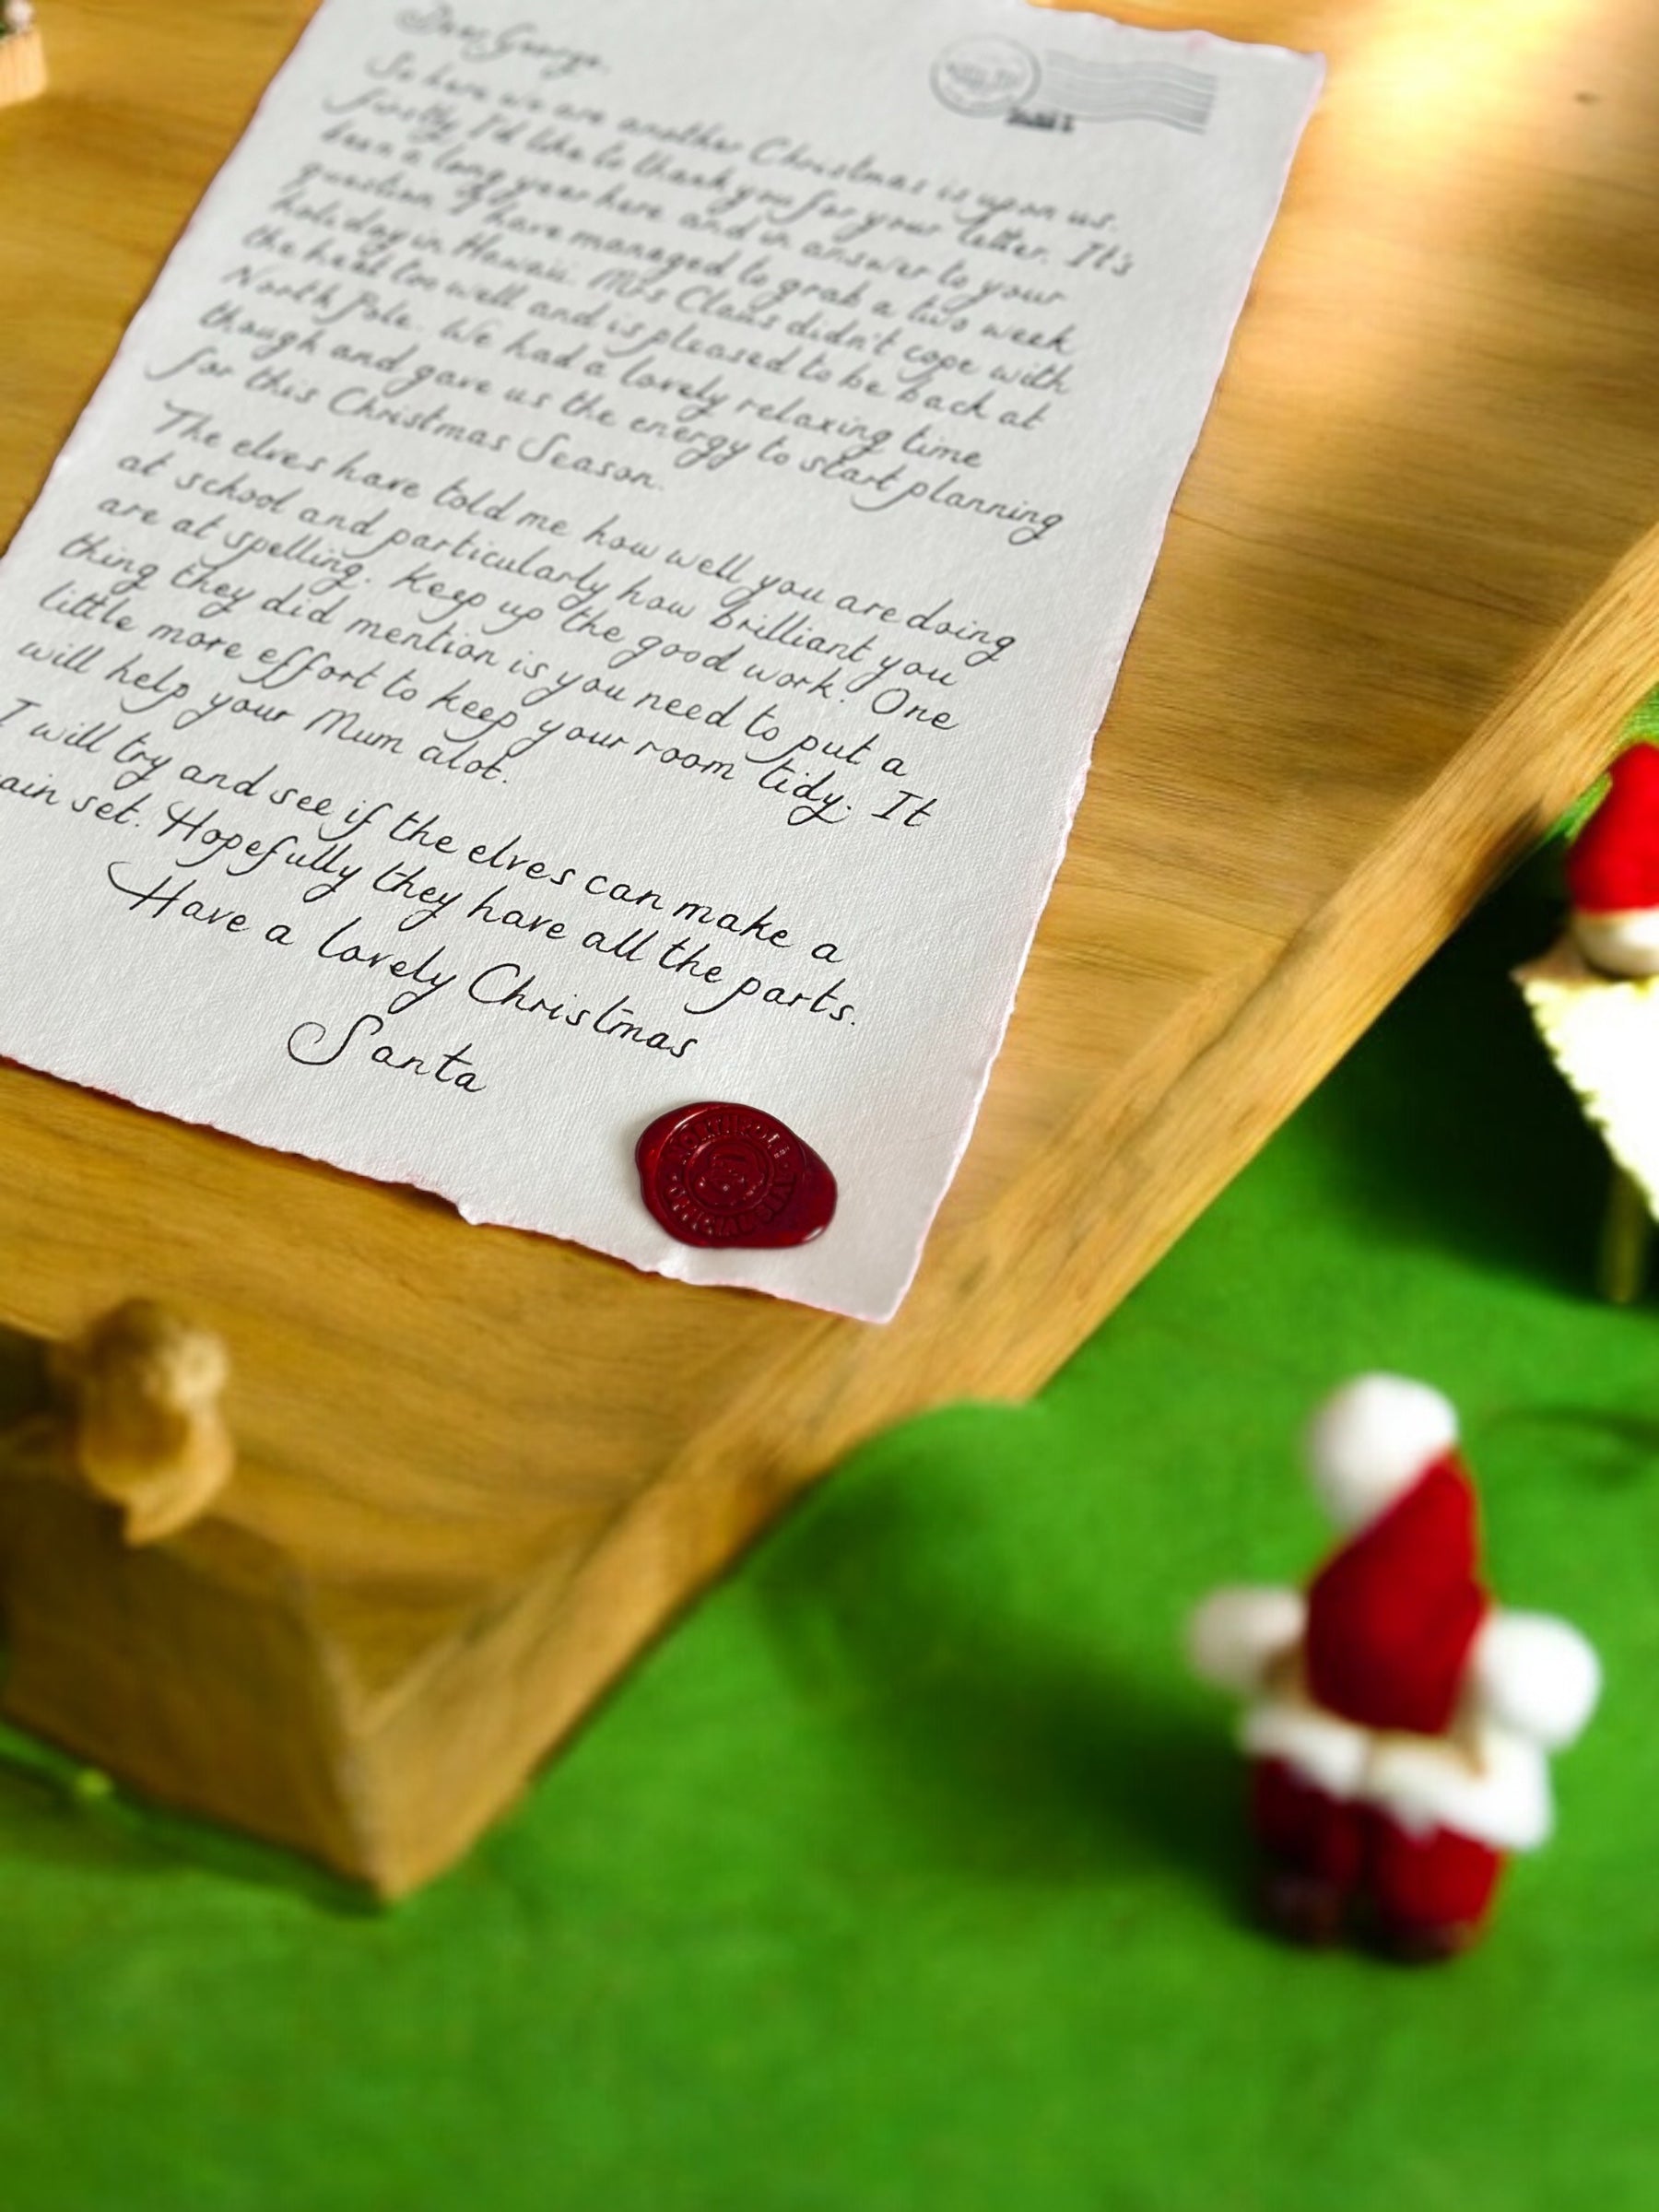 Dear George,
So here we are another Christmas is upon us.
firstly I'd like to thank you for your letter. It's
been a long year here and in answer to your
question. I have managed to grab a two week
holiday in Hawaii. Mrs Claus didn't cope with
the heat too well and is pleased to be back at
North Pole. We had a lovely relaxing time
though and gave us the energy to start planning
for this Christmas Season.
The elves have told me how well you are doing
at school and particularly how brilliant you
are at spelling. Keep up the good work! One
thing they did mention is you need to put a
little more effort to keep your room tidy. It
will help your Mum alot.
I will try and see if the elves can make a
ain set. Hopefully they have all the parts.
Have a lovely Christmas
Santa
OFFICIAL SEAL